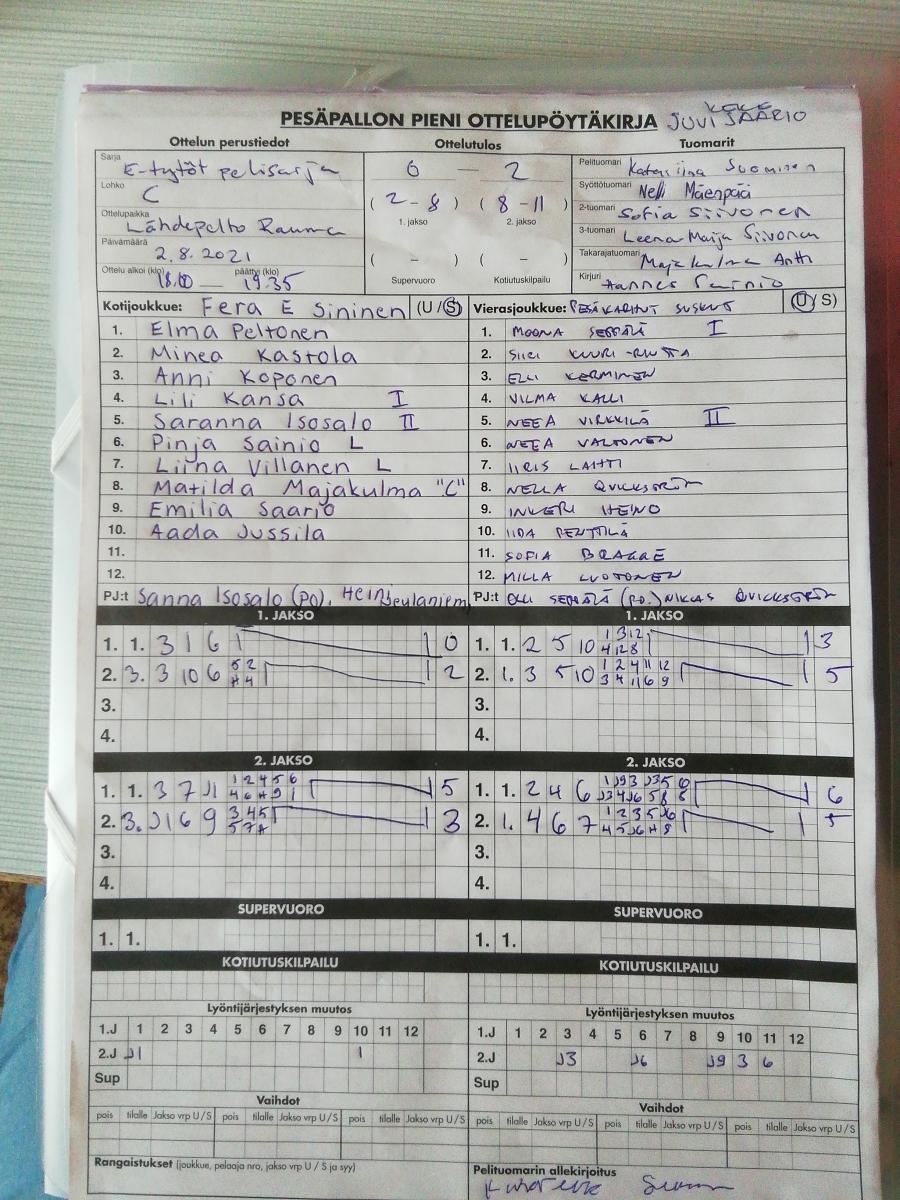 PESÄPALLON PIENI OTTELUPÖYTÄKIRJA
Ottelun perustiedot Ottelutulos Tuomarit
Sarja E-tytöt pelisarja
Lohko C
Ottelupaikka Lähdepelto Rauma
Päivämäärä 2.8.2021
Ottelu alkoi (klo) 18.00 — päättyi (klo) 19.35
0 — 2
( 2 - 8 ) ( 8 - 11 )
1. jakso 2. jakso
( - ) ( - )
Supervuoro Kotiutuskilpailu
Pelituomari Katariina Suominen
Syöttötuomari Nelli Mäenpää
2-tuomari Sofia Siivonen
3-tuomari Leena-Maija Siivonen
Takarajatuomari Majakulma Antti
Kirjuri Hannes Sainio
Kotijoukkue: Fera E Sininen (U/S)
1. Elma Peltonen
2. Minea Kastola
3. Anni Koponen
4. Lili Kansa I
5. Saranna Isosalo II
6. Pinja Sainio L
7. Liina Villanen L
8. Matilda Majakulma "C"
9. Emilia Saario
10. Aada Jussila
11.
12.
PJ:t Sanna Isosalo (PO), Heini
Vierasjoukkue: PESÄKARHUT SUSHUT (U/S)
1. MOONA SEPPÄLÄ I
2. SIIRI KUURI-RIUTTA
3. ELLI KERMINEN
4. VILMA KALLI
5. NEEA VIRKKILÄ II
6. NEEA VALTONEN
7. IIRIS LAHTI
8. NELLA QVICKSTRÖM
9. INKERI HEINO
10. IIDA PENTTILÄ
11. SOFIA BRAGGE
12. MILLA LUOTONEN
PJ:t OLLI SEPPÄLÄ (PO.) NIKLAS QVICKSTRÖM
1. JAKSO 1. JAKSO
1. 1. 3 1 6 0
2. 3. 3 10 6 2
3.
4.
1. 1. 2 5 10 3
2. 1. 3 5 10 5
3.
4.
2. JAKSO 2. JAKSO
1. 1. 3 7 J1 5
2. 3. J1 6 9 3
3.
4.
1. 1. 2 4 6 6
2. 1. 4 6 7 5
3.
4.
SUPERVUORO SUPERVUORO
1. 1. 1. 1.
KOTIUTUSKILPAILU KOTIUTUSKILPAILU
Lyöntijärjestyksen muutos
1.J 1 2 3 4 5 6 7 8 9 10 11 12
2.J J1 1
Sup
Lyöntijärjestyksen muutos
1.J 1 2 3 4 5 6 7 8 9 10 11 12
2.J J3 J6 J9 3 6
Sup
Vaihdot Vaihdot
pois tilalle Jakso vrp U/S pois tilalle Jakso vrp U/S pois tilalle Jakso vrp U/S
pois tilalle Jakso vrp U/S pois tilalle Jakso vrp U/S pois tilalle Jakso vrp U/S
Rangaistukset (joukkue, pelaaja nro, jakso vrp U / S ja syy)
Pelituomarin allekirjoitus